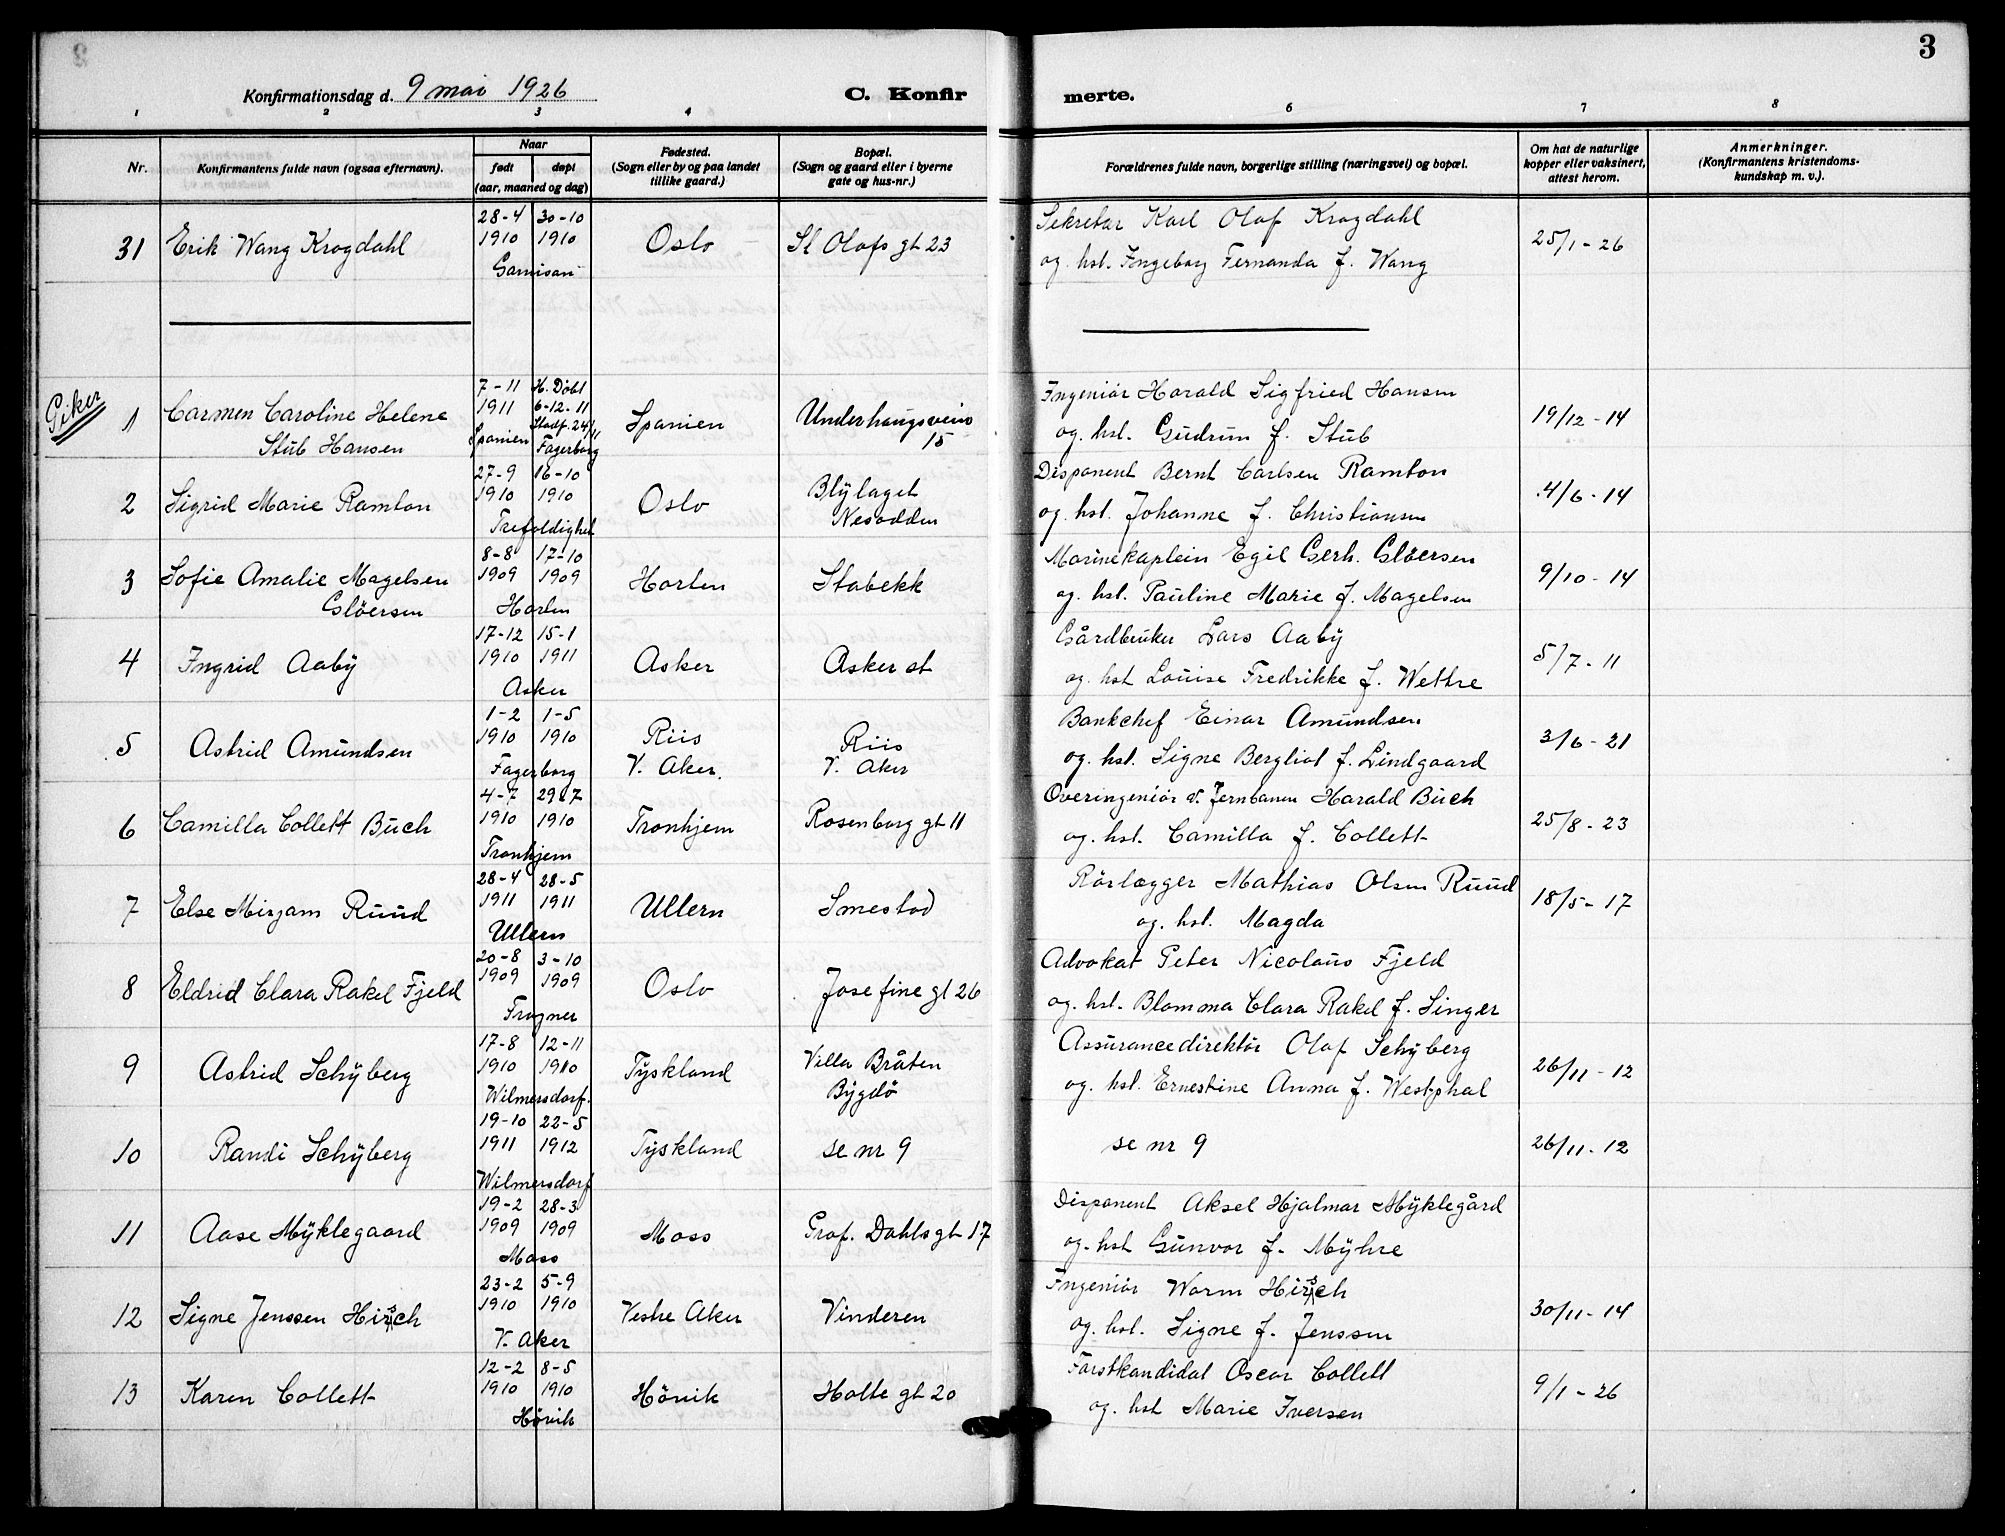 3
Konfirmationsdag d. 9 mai 1926 C. Konfirmerte.
1 2 3 4 6 7 8
Nr. Konfirmantens fulde navn (ogsaa efternavn). Naar født døpt (aar, maaned og dag) Fødested. (Sogn eller by og paa landet tillike gaard.) Bopæl. (Sogn og gaard eller i byerne gate og hus-nr.) Forældrenes fulde navn, borgerlige stilling (næringsvei) og bopæl. Om hat de naturlige kopper eller vaksinert, attest herom. Anmerkninger. (Konfirmantens kristendoms-kundskap m. v.).
28-4 30-10 Sekretær Karl Olaf Krogdahl
31 Erik Wang Krogdahl 1910 1910 Oslo St Olafs gt 23 25/1-26
Garnison og. hst. Ingeborg Fernanda f. Wang
Piker
7-11 H. Döbt Ingeniör Harald Sigfried Hansen
1 Carmen Caroline Helene 1911 6-12-11 Spanien Underhaugsveien 19/12-14
Stub Hansen Spanien Stadf. 24/11 Fagerborg 15 og. hst. Gudrun f. Stub
27-9 16-10 Disponent Bernt Carlsen Ramton
2 Sigrid Marie Ramton 1910 1910 Oslo Blylaget 4/6-14
Trefoldighet Nesodden og. hst. Johanne f. Christiansen
8-8 17-10 Marinekaptein Egil Gerh. Glöersen
3 Sofie Amalie Magelsen 1909 1909 Horten Stabekk 9/10-14
Glöersen Horten og. hst. Pauline Marie f. Magelsen
17-12 15-1 Gårdbruker Lars Aaby
4 Ingrid Aaby 1910 1911 Asker Asker st 5/7-11
Asker og. hst Louise Fredrikke f. Wettre
1-2 1-5 Bankchef Einar Amundsen
5 Astrid Amundsen 1910 1910 Riis Riis 3/6-21
Fagerborg V. Aker. V. Aker og. hst. Signe Bergliot f. Lindgaard
4-7 29-7 Overingeniör v. Jernbanen Harald Buch
6 Camilla Collett Buch 1910 1910 Tronhjem Rosenborg gt 11 25/8-23
Tronhjem og. hst. Camilla f. Collett
28-4 28-5 Rörlægger Mathias Olsen Ruud
7 Else Mirjam Ruud 1911 1911 Ullern Smestad 18/5-17
Ullern og. hst. Magda
20-8 3-10 Advokat Peter Nicolaus Fjeld
8 Eldrid Clara Rakel Fjeld 1909 1909 Oslo Josefine gt 26
Frogner og. hst. Blomma Clara Rakel f. Singer
17-8 12-11 Assurancedirektör Olaf Schyberg
9 Astrid Schyberg 1910 1910 Tyskland Villa Bråten 26/11-12
Wilmersdorf. Bygdö og. hst. Ernestine Anna f. Westphal
19-10 22-5
10 Randi Schyberg 1911 1912 Tyskland se nr 9 se nr 9 26/11-12
Wilmersdorf
19-2 28-3 Disponent Aksel Hjalmar Myklegård
11 Aase Myklegaard 1909 1909 Moss Prof. Dahls gt 17
Moss og. hst Gunvor f. Myhre
23-2 5-9 Ingeniör Worm Hirsch
12 Signe Jenssen Hirsch 1910 1910 Vestre Aker Vinderen 30/11-14
V. Aker og. hst. Signe f. Jenssen
12-2 8-5 Forstkandidat Oscar Collett
13 Karen Collett 1910 1910 Hövik Holte gt 20 9/1-26
Hövik og. hst Marie Iversen